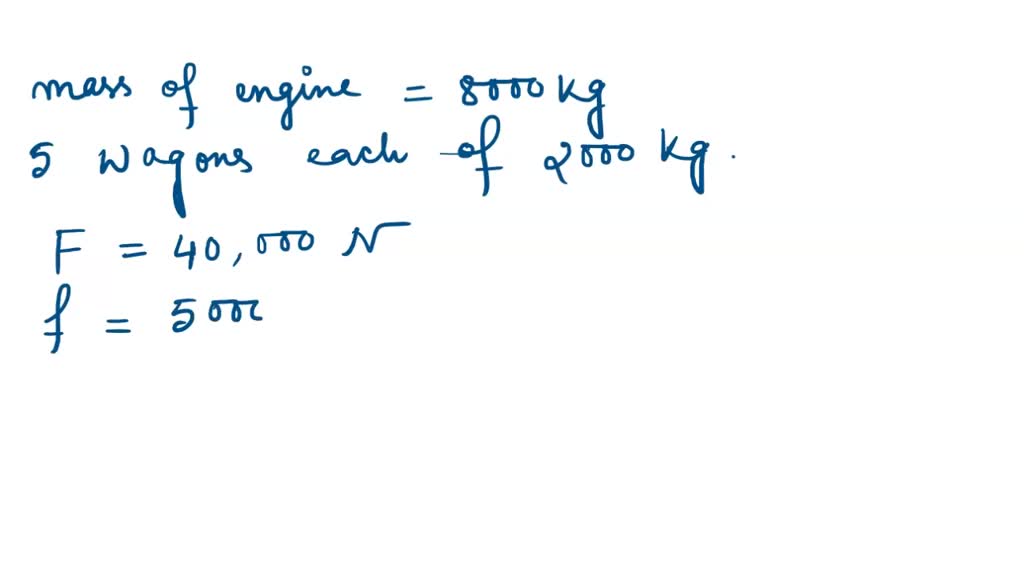 mass of engine = 8000 kg
5 wagons each of 2000 kg.
F = 40,000 N
f = 5000